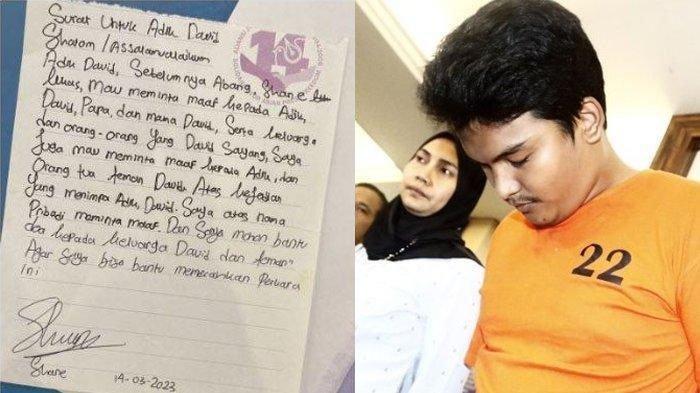 Surat Untuk Adik David
Shalom / Assalamualaikum
Adik David, Sebelumnya Abang, Shane
lukas, Mau meminta maaf kepada Adik
David, Papa, dan mama David, Serta keluarga
dan orang-orang Yang David Sayang, Saya
Juga mau meminta maaf kepada Adik, dan
Orang tua teman David Atas kejadian
Yang menimpa Adik David. Saya atas nama
Pribadi meminta maaf. Dan Saya mohon bantu
doa kepada keluarga David dan teman"
Agar Saya bisa bantu memecahkan Perkara
Ini
Shane
14-03-2023
22